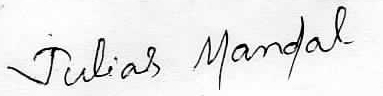 Julias Mandal